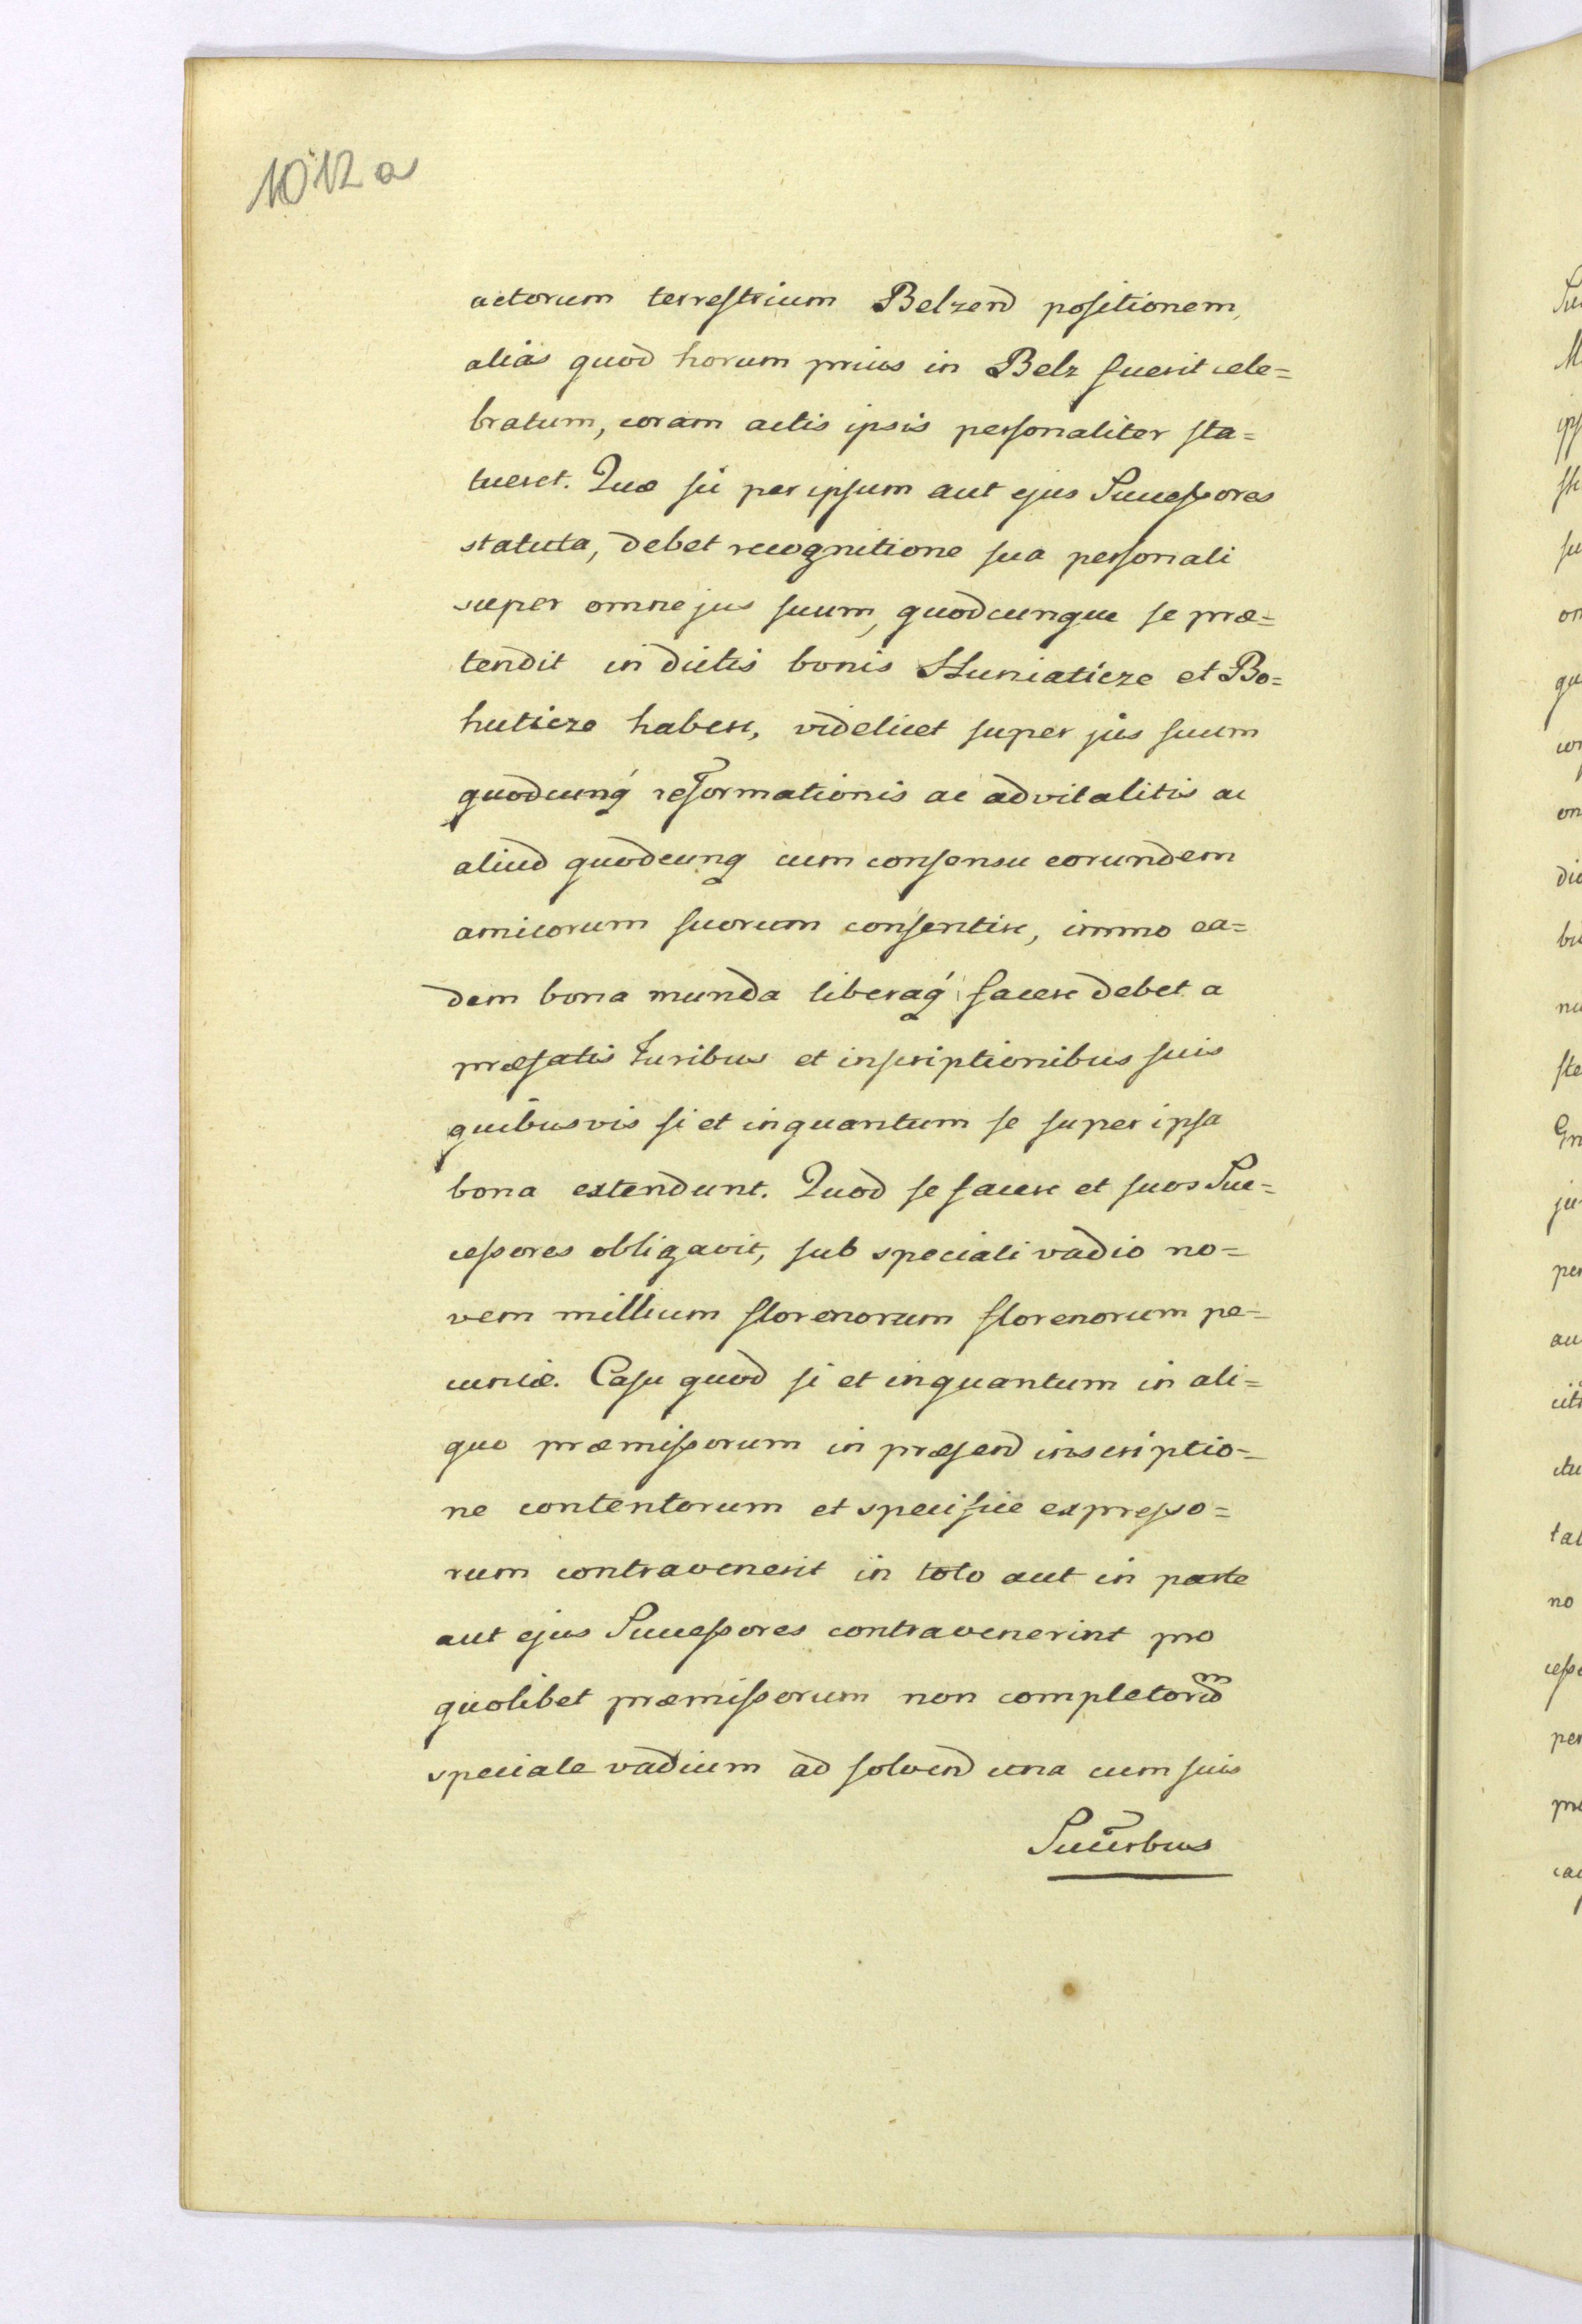 1012 a
actorum terrestrium Belzen͠d positionem,
alias quod horum prius in Belz fuerit cele=
bratum, coram actis ipsis personaliter sta=
tueret. Quæ sii per ipsum aut ejus Successores
statuta, debet recognitione sua personali
super omne jus suum, quodcunque se præ=
tendit in dictis bonis Huniaticze et Bo=
huticze habere, videlicet super jus suum
quodcunq́ reformationis ac advitalitis ac
aliud quodcunq cum consensu eorundem
amicorum suorum consentire, immo ea=
dem bona munda liberaq́ facere debet a
præfatis Juribus et inscriptionibus suis
quibusvis si et inquantum se super ipsa
bona extendunt. Quod se facere et suos Suc=
cessores obligavit, sub speciali vadio no=
vem millium florenorum florenorum pe=
cuniæ. Casu quod si et inquantum in ali=
quo præmissorum in præsend inscriptio=
ne contentorum et specifice expresso=
rum contravenerit in toto aut in parte
aut ejus Successores contravenerint pro
quolibet præmissorum non completorum
speciale vadium ad solvend una cum suis
Succrbus